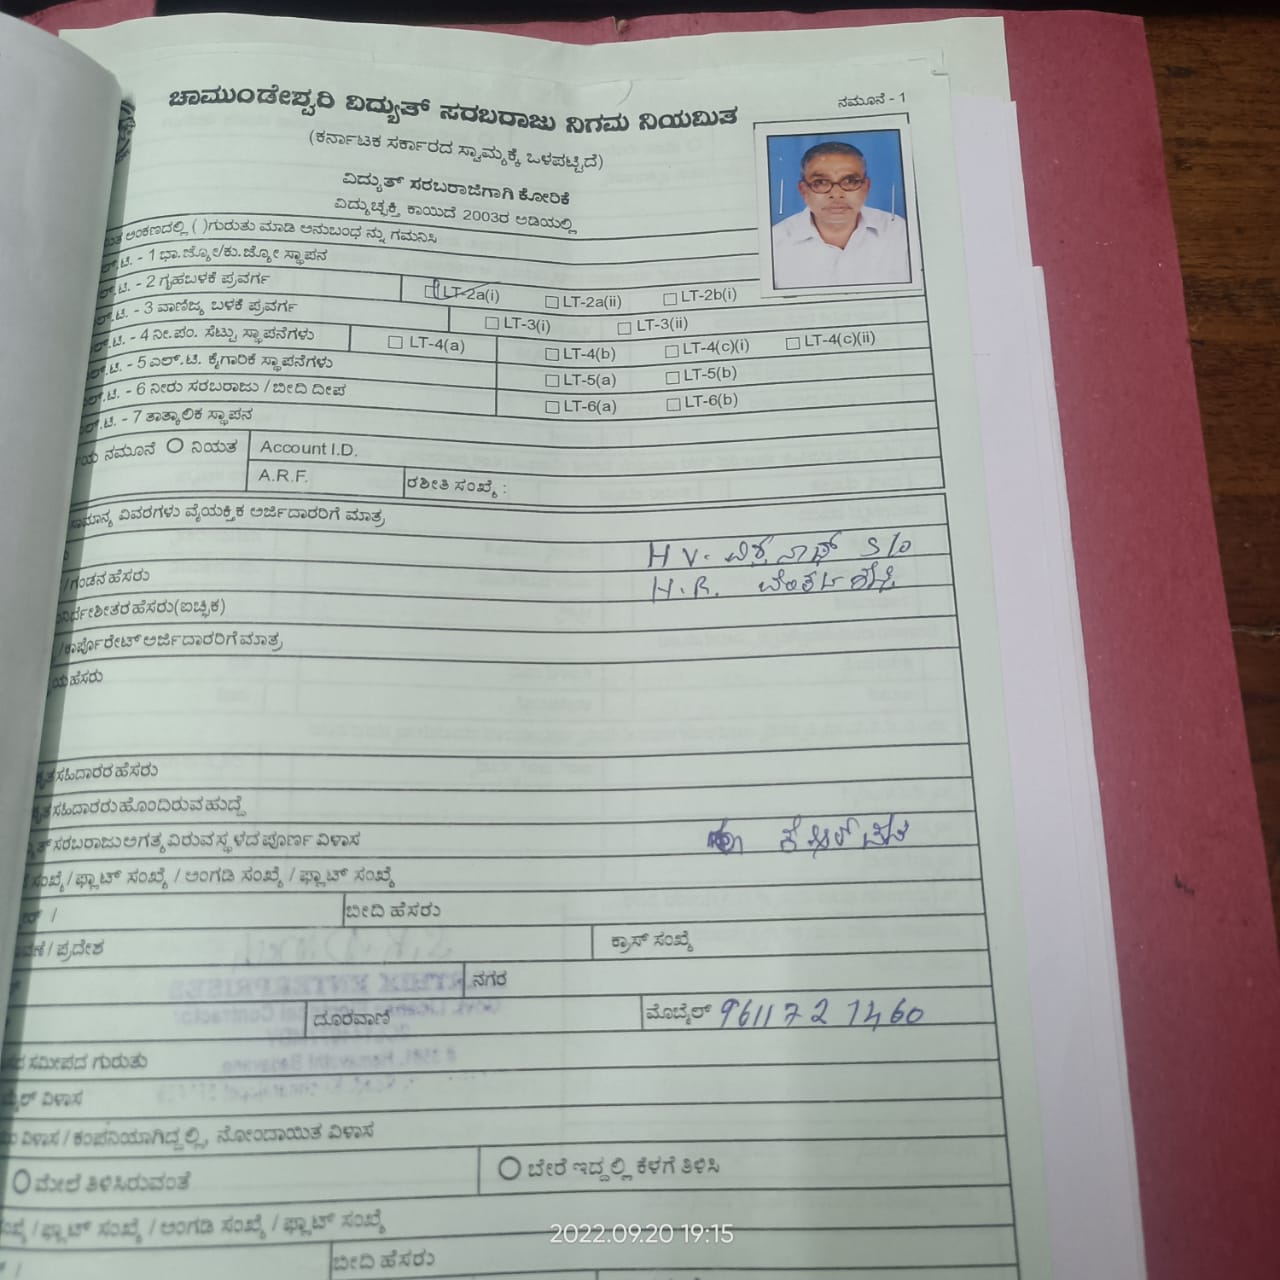 ಚಾಮುಂಡೇಶ್ವರಿ ವಿದ್ಯುತ್ ಸರಬರಾಜು ನಿಗಮ ನಿಯಮಿತ
ನಮೂನೆ - 1
(ಕರ್ನಾಟಕ ಸರ್ಕಾರದ ಸ್ವಾಮ್ಯಕ್ಕೆ ಒಳಪಟ್ಟಿದೆ)
ವಿದ್ಯುತ್ ಸರಬರಾಜಿಗಾಗಿ ಕೋರಿಕೆ
ವಿದ್ಯುಚ್ಛಕ್ತಿ ಕಾಯಿದೆ 2003ರ ಅಡಿಯಲ್ಲಿ
ಅಂಕಣದಲ್ಲಿ ( )ಗುರುತು ಮಾಡಿ ಅನುಬಂಧ ನ್ನು ಗಮನಿಸಿ
.ಟಿ. - 1 ಭಾ.ಜ್ಯೋ/ಕು.ಜ್ಯೋ ಸ್ಥಾಪನ
.ಟಿ. - 2 ಗೃಹಬಳಕೆ ಪ್ರವರ್ಗ LT-2a(i) LT-2a(ii) LT-2b(i)
.ಟಿ. - 3 ವಾಣಿಜ್ಯ ಬಳಕೆ ಪ್ರವರ್ಗ LT-3(i) LT-3(ii)
.ಟಿ. - 4 ನೀ.ಪಂ. ಸೆಟ್ಟು ಸ್ಥಾಪನೆಗಳು LT-4(a) LT-4(b) LT-4(c)(i) LT-4(c)(ii)
.ಟಿ. - 5 ಎಲ್.ಟಿ. ಕೈಗಾರಿಕೆ ಸ್ಥಾಪನೆಗಳು LT-5(a) LT-5(b)
.ಟಿ. - 6 ನೀರು ಸರಬರಾಜು / ಬೀದಿ ದೀಪ LT-6(a) LT-6(b)
.ಟಿ. - 7 ತಾತ್ಕಾಲಿಕ ಸ್ಥಾಪನ
ನಮೂನೆ ನಿಯತ Account I.D.
A.R.F. ರಶೀತಿ ಸಂಖ್ಯೆ :
ಸಾಮಾನ್ಯ ವಿವರಗಳು ವೈಯಕ್ತಿಕ ಅರ್ಜಿದಾರರಿಗೆ ಮಾತ್ರ
H V. S/o
/ಗಂಡನ ಹೆಸರು H.R.
ನಿರ್ದೇಶಿತರ ಹೆಸರು(ಐಚ್ಛಿಕ)
/ಕಾರ್ಪೊರೇಟ್ ಅರ್ಜಿದಾರರಿಗೆ ಮಾತ್ರ
ಯ ಹೆಸರು
ಕೃತ ಸಹಿದಾರರ ಹೆಸರು
ಕೃತ ಸಹಿದಾರರು ಹೊಂದಿರುವ ಹುದ್ದೆ
ತ್ ಸರಬರಾಜು ಅಗತ್ಯವಿರುವ ಸ್ಥಳದ ಪೂರ್ಣ ವಿಳಾಸ
ಸಂಖ್ಯೆ / ಫ್ಲಾಟ್ ಸಂಖ್ಯೆ / ಅಂಗಡಿ ಸಂಖ್ಯೆ / ಫ್ಲಾಟ್ ಸಂಖ್ಯೆ
/ ಬೀದಿ ಹೆಸರು
/ ಪ್ರದೇಶ ಕ್ರಾಸ್ ಸಂಖ್ಯೆ
ನಗರ
ದೂರವಾಣಿ ಮೊಬೈಲ್ 9611727460
ಸಮೀಪದ ಗುರುತು
ವಿಳಾಸ
ವಿಳಾಸ / ಕಂಪನಿಯಾಗಿದ್ದಲ್ಲಿ, ನೋಂದಾಯಿತ ವಿಳಾಸ
ಮೇಲೆ ತಿಳಿಸಿರುವಂತೆ ಬೇರೆ ಇದ್ದಲ್ಲಿ ಕೆಳಗೆ ತಿಳಿಸಿ
/ ಫ್ಲಾಟ್ ಸಂಖ್ಯೆ / ಅಂಗಡಿ ಸಂಖ್ಯೆ / ಫ್ಲಾಟ್ ಸಂಖ್ಯೆ
2022.09.20 19:15
/ ಬೀದಿ ಹೆಸರು